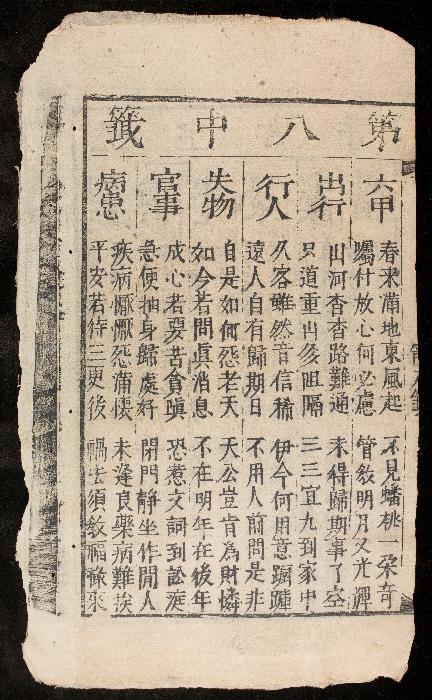 第八中籤
六甲
春來蘭地東風起 不見蟠桃一朵奇
囑付放心何必慮 管教明月又光輝
出行
山河杳杳路難通 未得歸期事了空
只道重山多阻隔 三三宜九到家中
行人
久客雖然音信稀 伊今何用意躊躇
遠人自有歸期日 不用人前問是非
失物
自是如何怨老天 天公豈肯為財憐
如今若問真消息 不在明年在後年
官事
成心若要苦貪嗔 恐惹文詞到訟庭
急便抽身歸處好 閉門靜坐作閒人
病患
疾病懨懨恐滿懷 未逢良藥病難挨
平安若待三更後 禍去須教福祿來